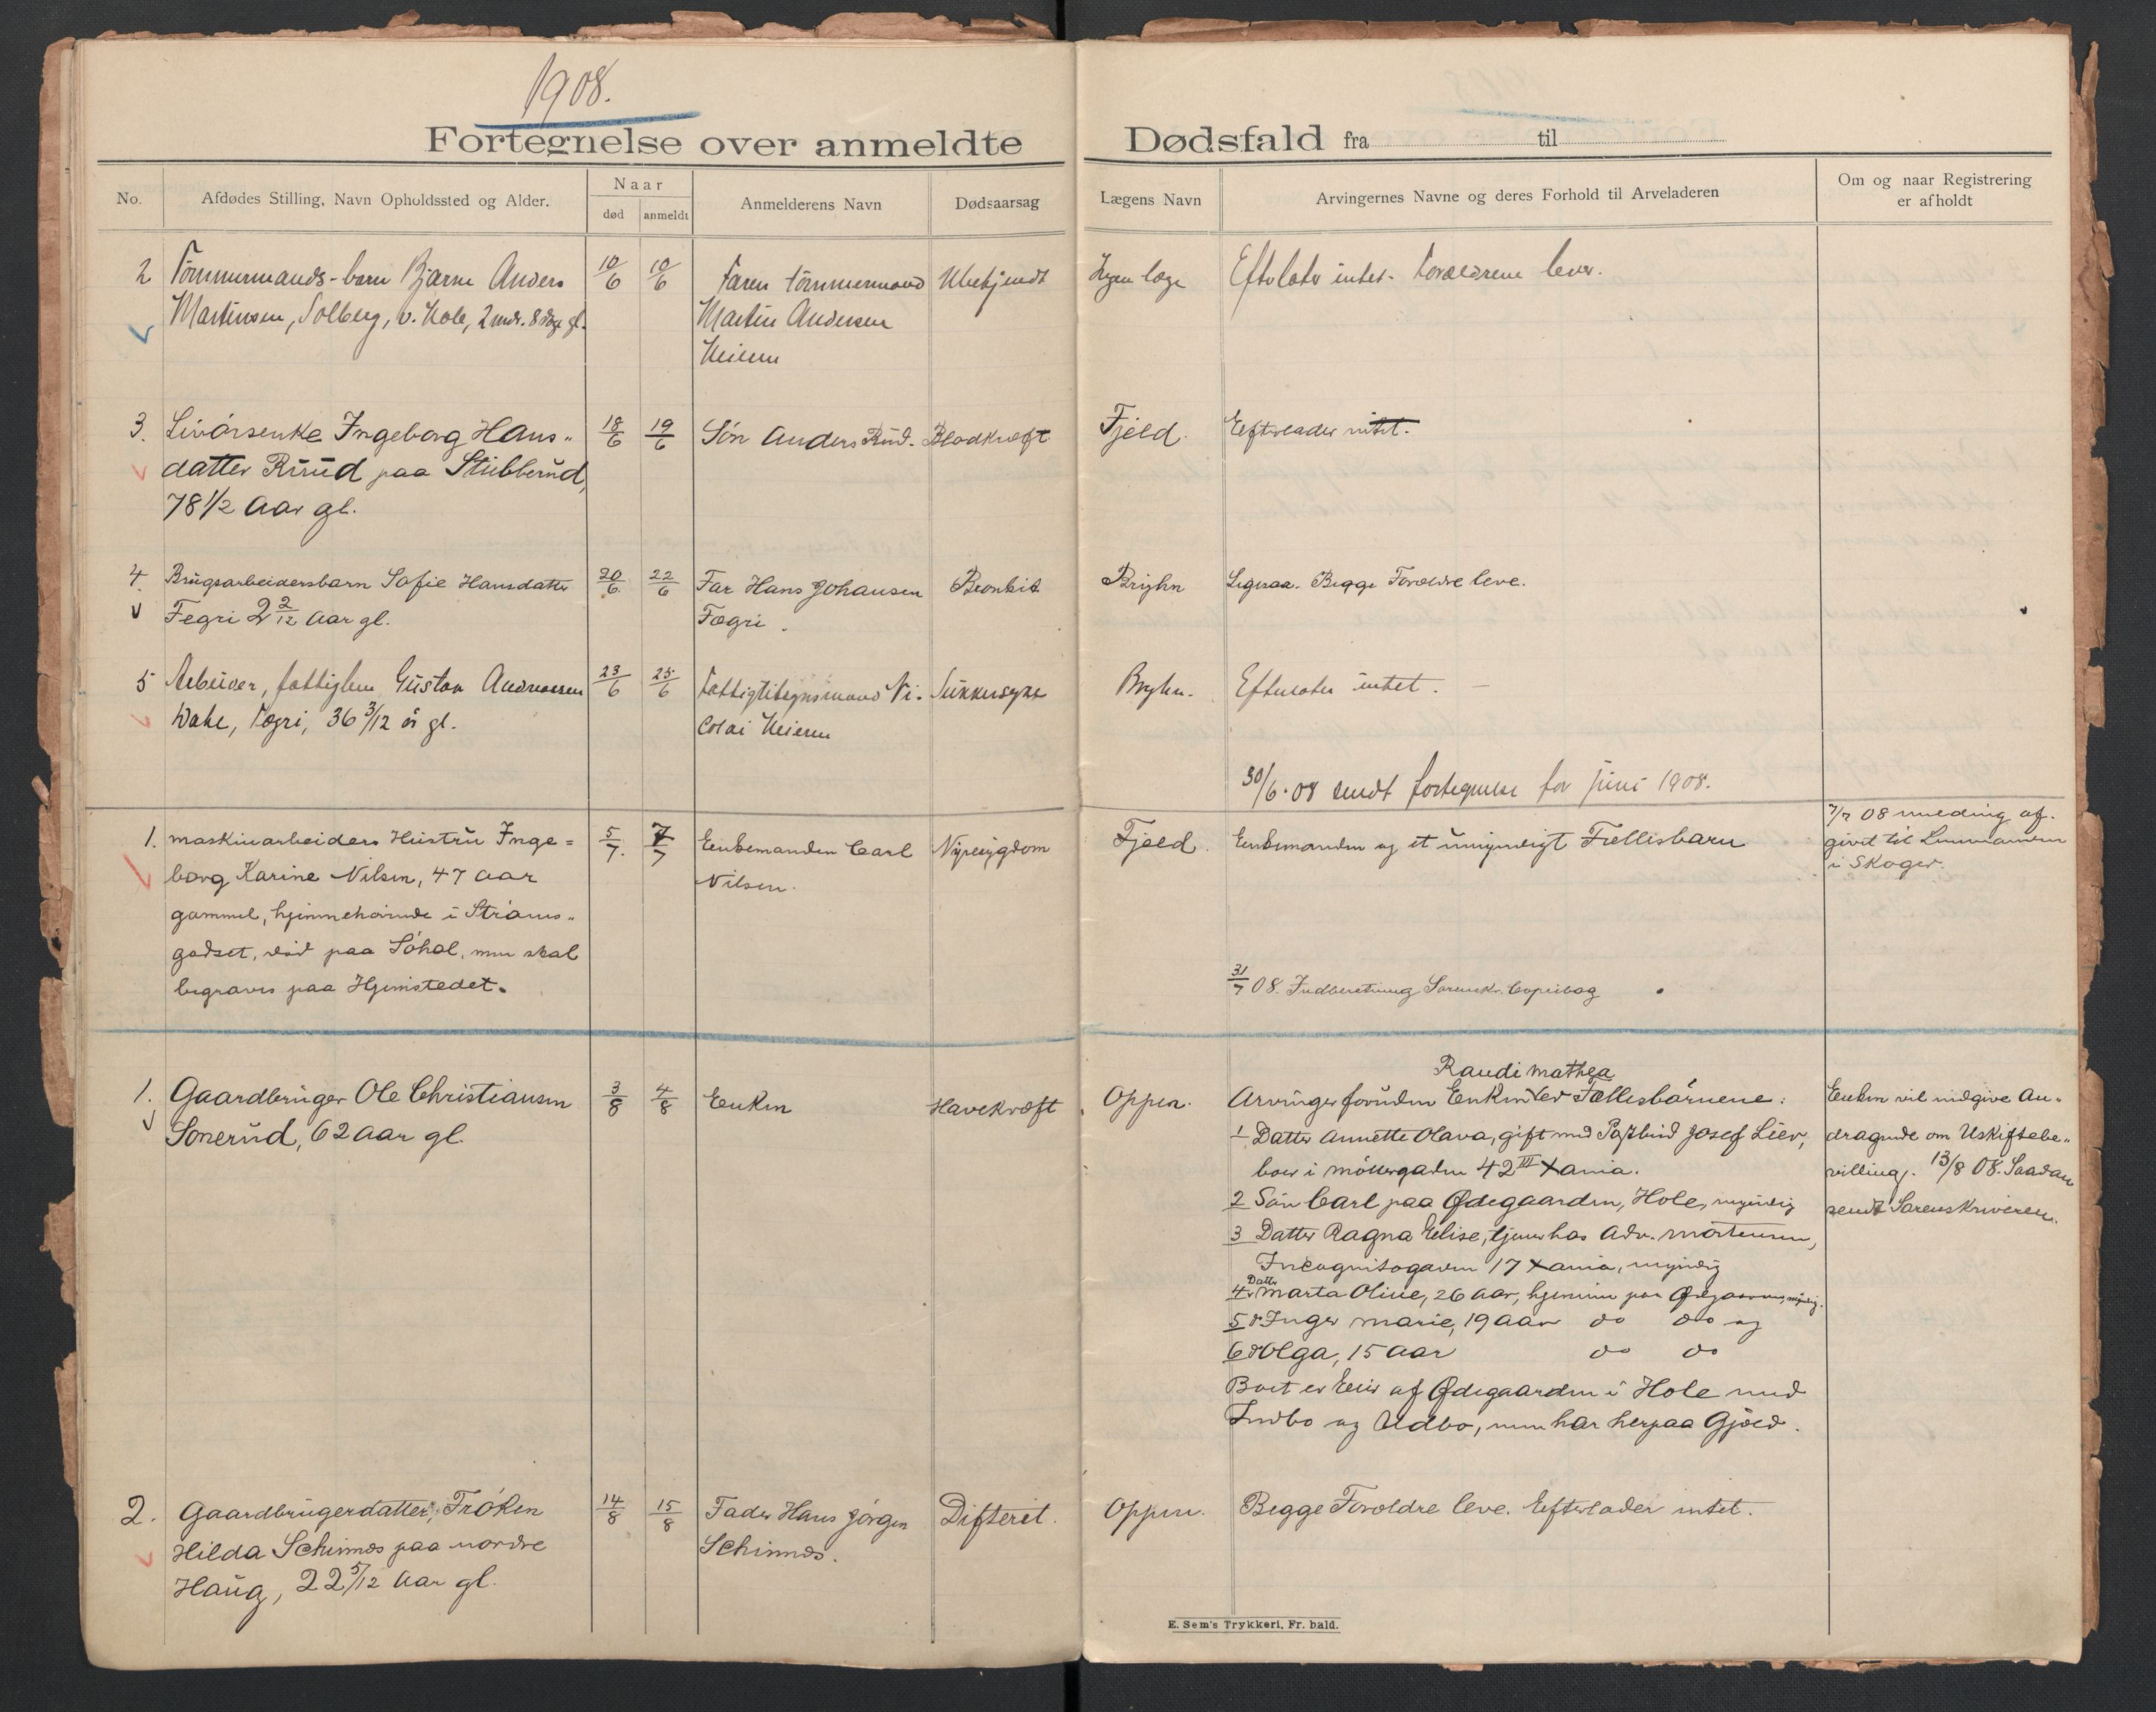 1908.
Fortegnelse over anmeldte Dødsfald fra til
No.
Afdødes Stilling, Navn Opholdssted og Alder.
Naar
død
anmeldt
Anmelderens Navn
Dødsaarsag
Lægens Navn
Arvingernes Navne og deres Forhold til Arveladeren
Om og naar Registrering
er afholdt
2 Tømmermands-barn Bjarne Anders 10/6 10/6 Faren tømmermand Ubekjendt Ingen læge Efterlater intet. Forældrene lever.
Martinsen, Solberg, v. Hole, 2 mdr. 8 dage gl. Martin Andersen
3. Livörsenke Ingeborg Hans„ 18/6 19/6 Sön Anders Rud. Blodkræft Fjeld. Efterlader intet.
datter Ruud paa Stubberud,
78 1/2 Aar gl.
4. Brugsarbeidersbarn Sofie Hansdatter 20/6 22/6 Far Hans Johansen Bronkit Bryhn Ligesaa. Begge Forældre leve.
Fegri 2 2/12 Aar gl. Fægri.
5 Arbeider, fattiglem Gustav Andreassen 23/6 25/6 Fattigtilsynsmand Ni- Sukkersyke Bryhn. Efterlater intet.
Fægri, 36 3/12 år gl. colai
30/6.08 sendt fortegnelse for juni 1908.
1. maskinarbeiders Hustru Inge= 5/7. 7/7 Enkemanden Carl Nyresygdom Fjeld. Enkemanden og et umyndigt Fællesbarn 7/7 08 melding af-
borg Karine Nilsen, 47 Aar Nilsen. givet til Lensmanden
gammel, hjemmehörende i Ströms„ i Skoger.
godset, död paa Söhol, men skal
begraves paa Hjemstedet. 31/7 08. Indberetning Sorenskr. Copibog
Randi Mathea
1. Gaardbruger Ole Christiansen 3/8 4/8 Enken Mavekræft Oppen. Arvinger foruden Enken er Fællesbörnene: Enken vil indgive An„
Sonerud, 62 Aar gl. 1 Datter Annette Olava, gift med Postbud Josef Lier, dragende om Uskiftebe„
boer i Möllergaden 42 III Xania. villing. 13/8 08. Saadan
2 Sön Carl paa Ødegaarden, Hole, myndig sendt Sorenskriveren.
3 Datter Ragna Elise, tjener hos Adv. Mortensen,
Incognitogaden 17 Xania, myndig
4 Datter Marta Oline, 26 Aar, hjemme paa Ødegaarden, myndig.
5 d Inger Marie, 19 Aar do do og
6 d Olga, 15 Aar do do
Boet er Eier af Ødegaarden i Hole med
Indbo og Udbo, men har herpaa Gjæld.
2. Gaardbrugerdatter, Fröken 14/8 15/8 Fader Hans Jörgen Difterit. Oppen. Begge Forældre leve. Efterlader intet.
Hilda Schinnes paa nordre Schinnes.
Haug, 22 5/12 Aar gl.
E. Sem's Trykkeri, Fr. hald.